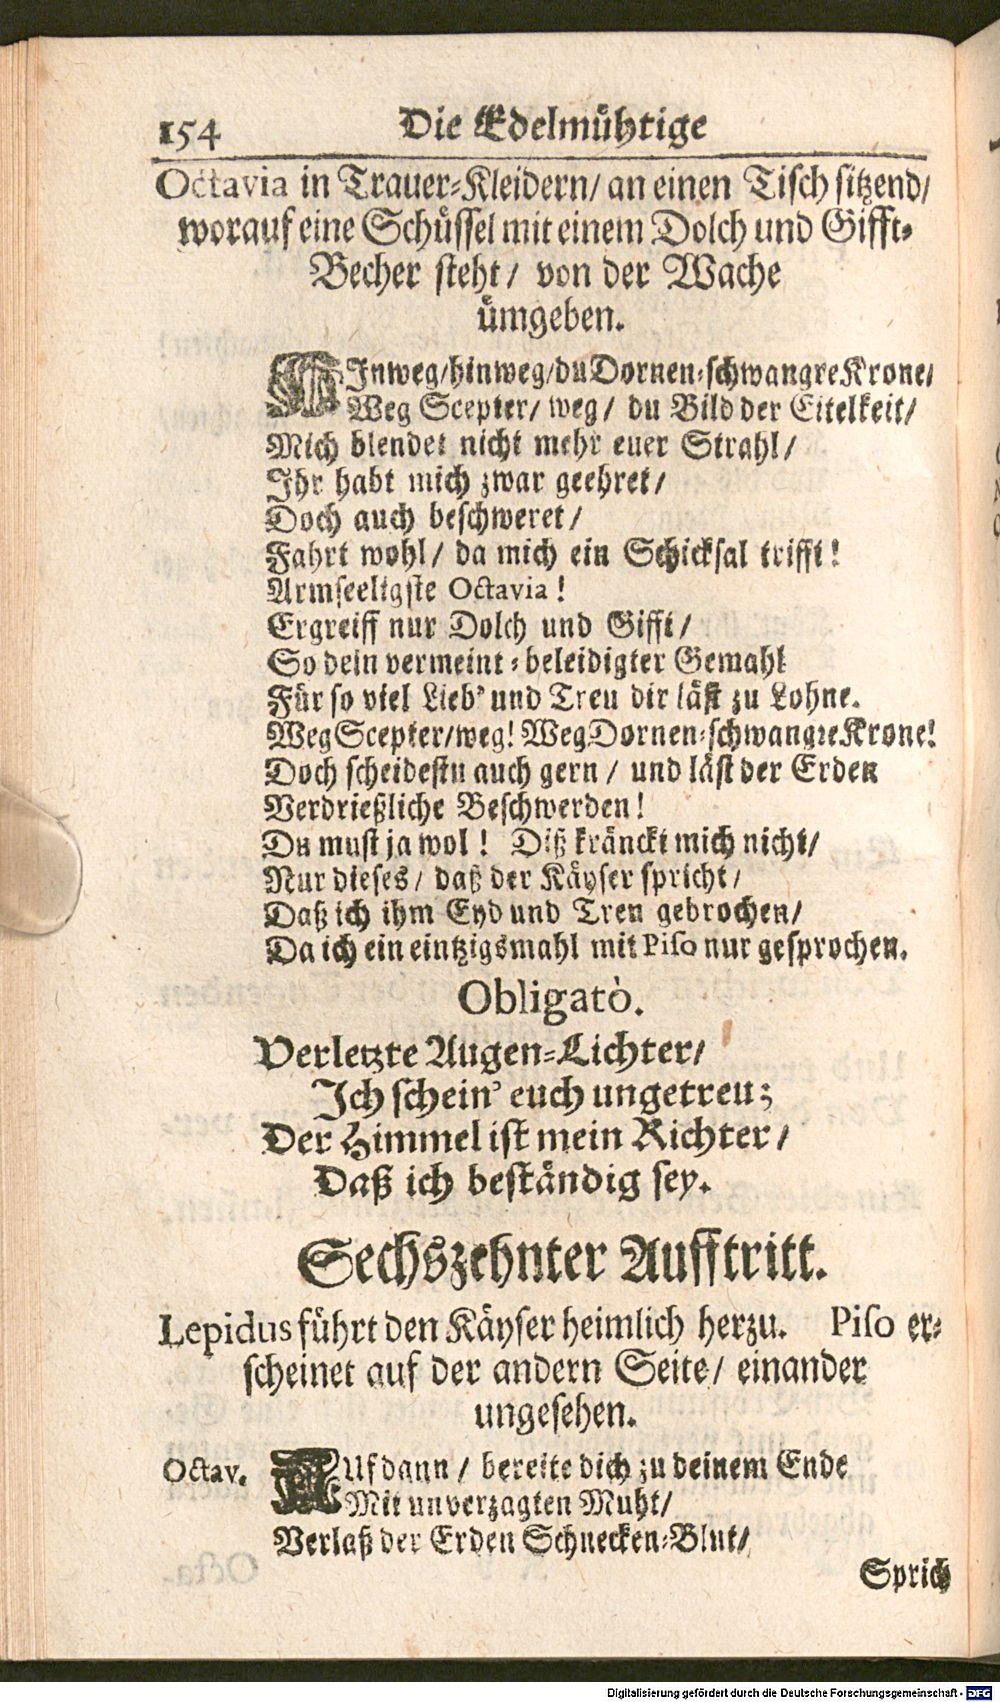 154 Die Edelmühtige
Octavia in Trauer-Kleidern/ an einen Tisch sitzend/
worauf eine Schüssel mit einem Dolch und Gifft-
Becher steht/ von der Wache
ümgeben.
HInweg/hinweg/du Dornen-schwangre Krone/
Weg Scepter/ weg/ du Bild der Eitelkeit/
Mich blendet nicht mehr euer Strahl/
Ihr habt mich zwar geehret/
Doch auch beschweret/
Fahrt wohl/ da mich ein Schicksal trifft!
Armseeligste Octavia!
Ergreiff nur Dolch und Gifft/
So dein vermeint-beleidigter Gemahl
Für so viel Lieb' und Treu dir läst zu Lohne.
Weg Scepter/weg! Weg Dornen-schwangre Krone!
Doch scheidestu auch gern/ und läst der Erden
Verdrießliche Beschwerden!
Du must ja wol! Diß kränckt mich nicht/
Nur dieses/ daß der Käyser spricht/
Daß ich ihm Eyd und Treu gebrochen/
Da ich ein eintzigsmahl mit Piso nur gesprochen.
Obligatò.
Verletzte Augen-Lichter/
Ich schein' euch ungetreu;
Der Himmel ist mein Richter/
Daß ich beständig sey.
Sechszehnter Aufftritt.
Lepidus führt den Käyser heimlich herzu. Piso er-
scheinet auf der andern Seite/ einander
ungesehen.
Octav. AUf dann/ bereite dich zu deinem Ende
Mit unverzagten Muht/
Verlaß der Erden Schnecken-Blut/
Sprich
Digitalisierung gefördert durch die Deutsche Forschungsgemeinschaft - DFG